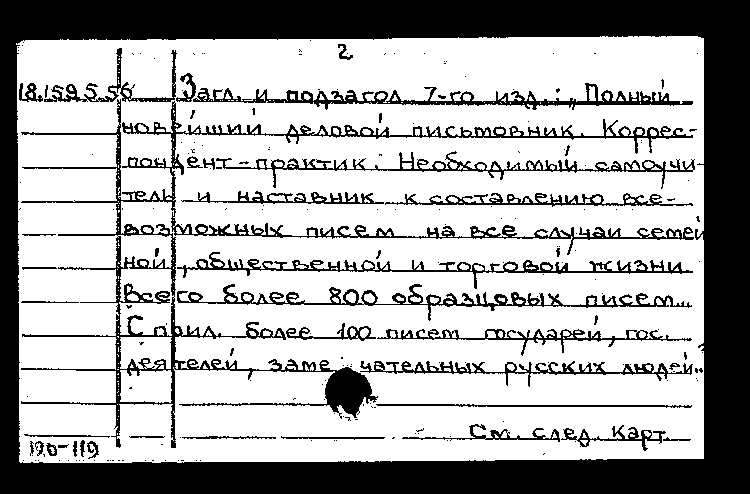 2
18.159.5.56 Загл. и подзагол 7-го изд.: „Полный
новейший деловой письмовник. Коррес-
пондент-практик. Необходимый самоучи-
тель и наставник к составлению все-
возможных писем на все случаи семей
ной, общественной и торговой жизни.
Всего более 800 образцовых писем...
С прил. более 100 писем государей, гос.
деятелей, замечательных русских людей..."
См. след. карт.
120-119